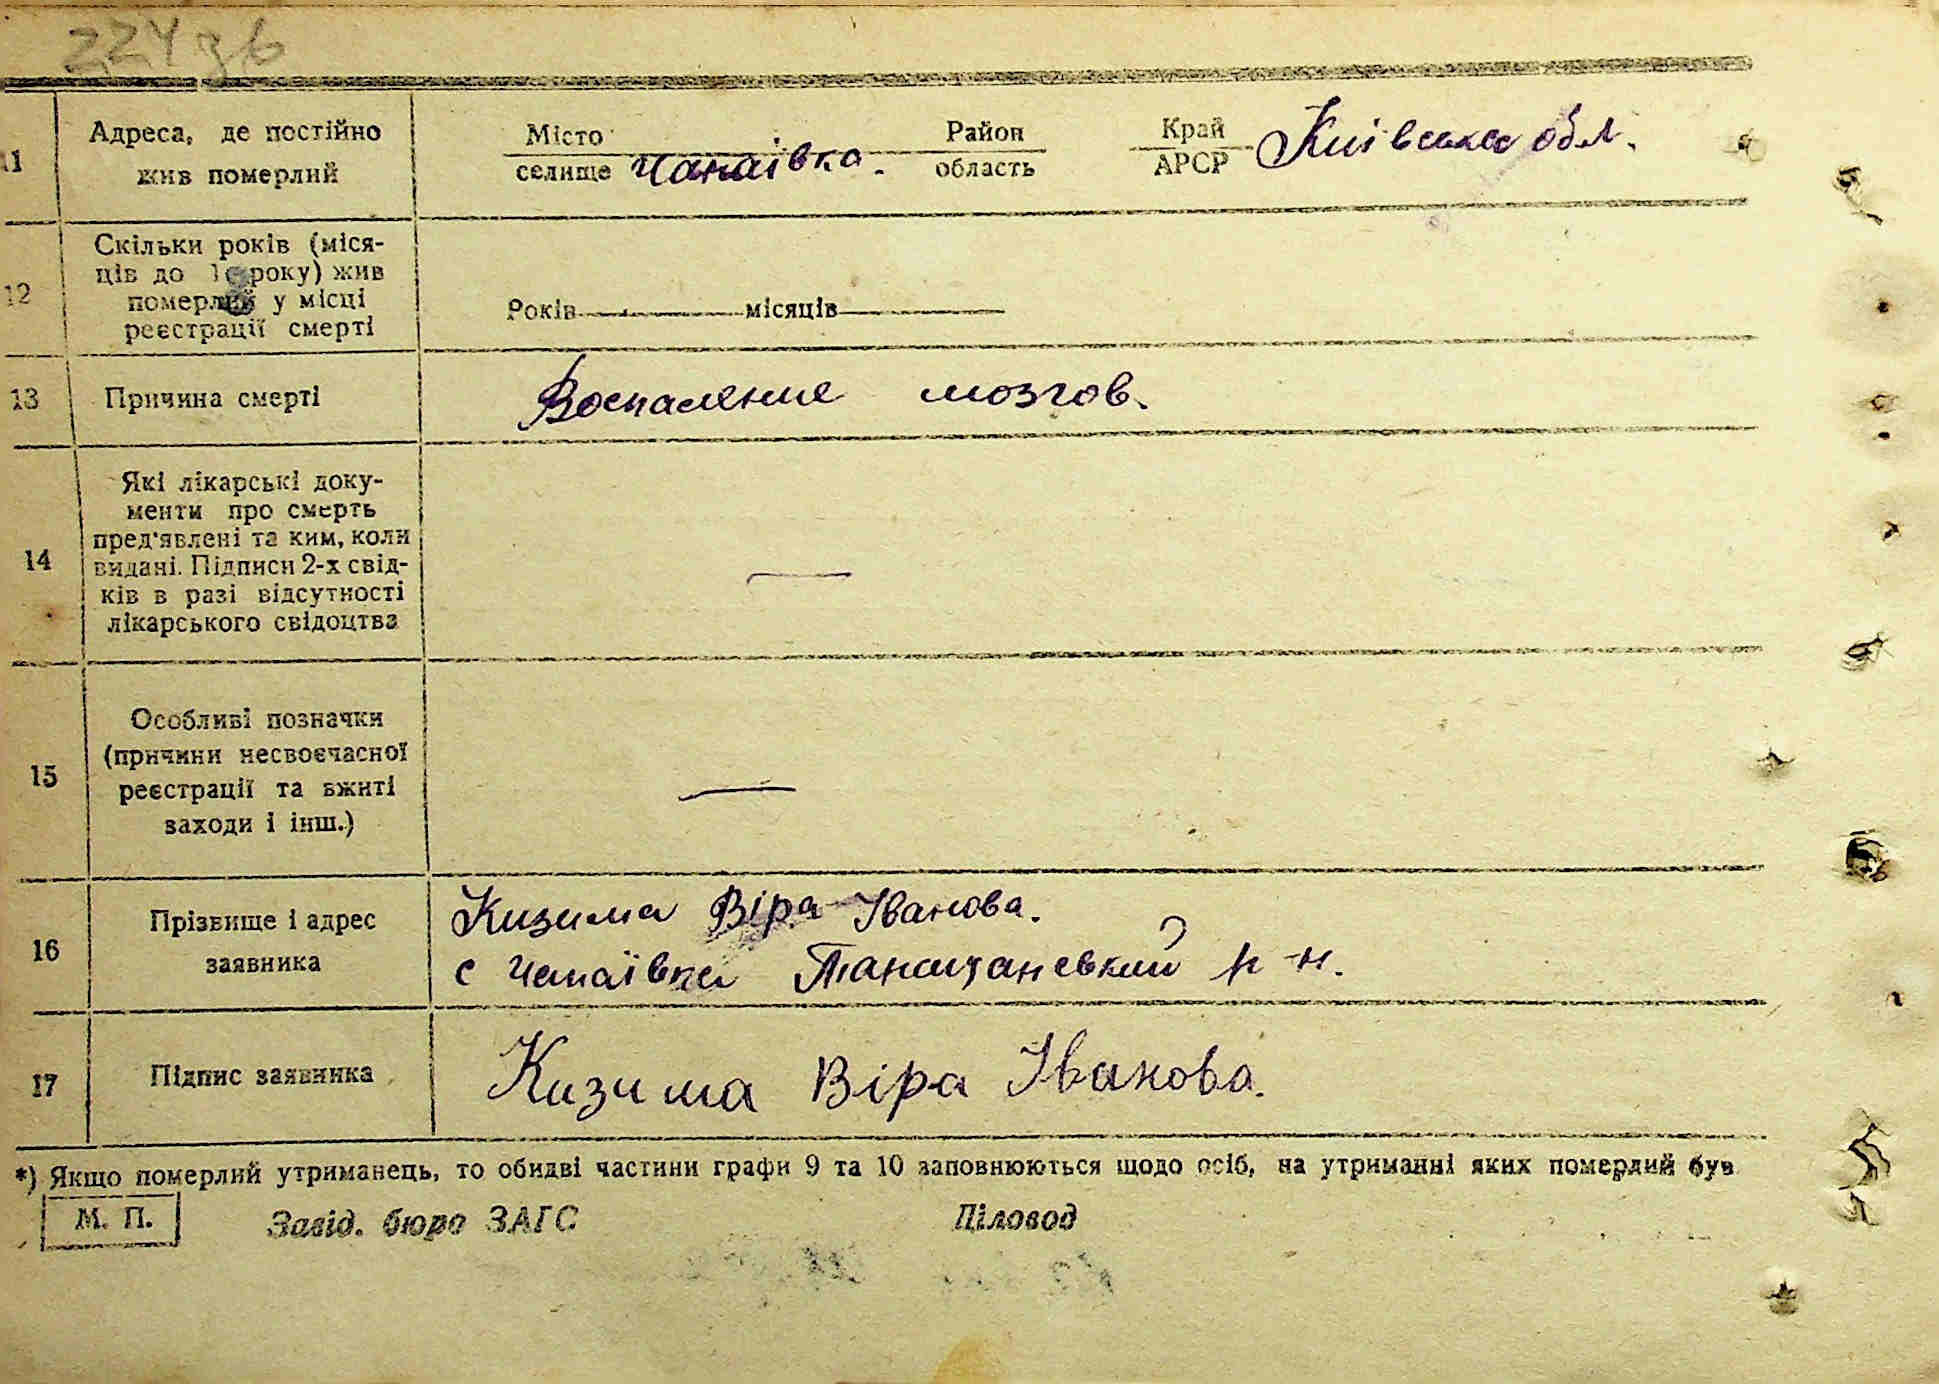 224 зв
11
Адреса, де постійно
жив померлий
Місто
селище
Чапаївка.
Район
область
Край
АРСР
Київська обл.
12
Скільки років (міся-
ців до 1 року) жив
померлий у місці
реєстрації смерті
Років місяців
13
Причина смерті
Воспаление мозгов.
14
Які лікарські доку-
менти про смерть
пред'явлені та ким, коли
видані. Підписи 2-х свід-
ків в разі відсутності
лікарського свідоцтва
—
15
Особливі позначки
(причини несвоєчасної
реєстрації та вжиті
заходи і інш.)
—
16
Прізвище і адрес
заявника
Кизима Віра Іванова.
с Чапаївка Таращанський р-н.
17
Підпис заявника
Кизима Віра Іванова.
*) Якщо померлий утриманець, то обидві частини графи 9 та 10 заповнюються щодо осіб, на утриманні яких померлий був
М. П.
Завід. бюро ЗАГС
Діловод